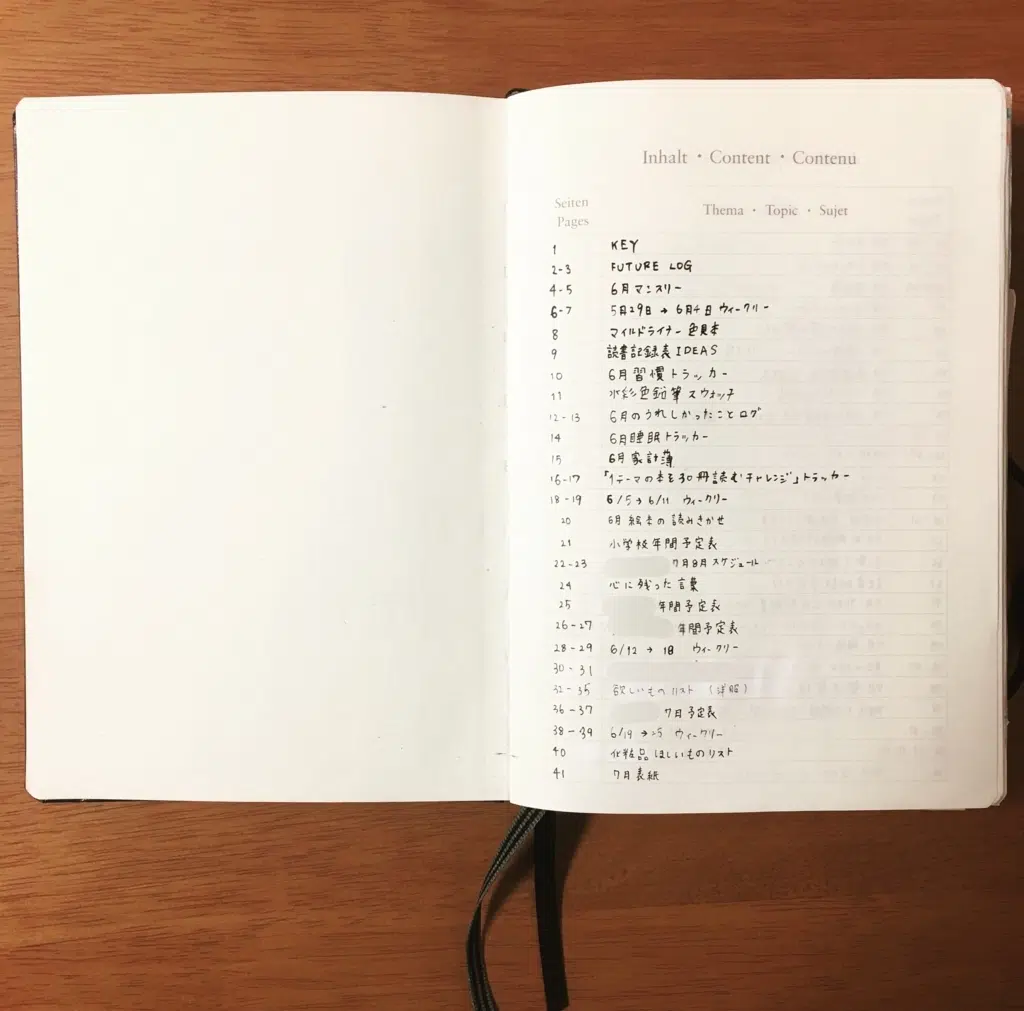 Inhalt · Content · Contenu
Seiten
Pages
Thema · Topic · Sujet
1 KEY
2-3 FUTURE LOG
4-5 6月マンスリー
6-7 5月29日→6月4日 ウィークリー
8 マイルドライナー色見本
9 読書記録表 IDEAS
10 6月習慣トラッカー
11 水彩色鉛筆スウォッチ
12-13 6月のうれしかったことログ
14 6月睡眠トラッカー
15 6月家計簿
16-17 「1テーマの本を30冊読むチャレンジ」トラッカー
18-19 6/5→6/11 ウィークリー
20 6月絵本の読みきかせ
21 小学校年間予定表
22-23 7月8月スケジュール
24 心に残った言葉
25 年間予定表
26-27 年間予定表
28-29 6/12→18 ウィークリー
30-31
32-35 欲しいものリスト（洋服）
36-37 7月予定表
38-39 6/19→25 ウィークリー
40 化粧品ほしいものリスト
41 7月表紙